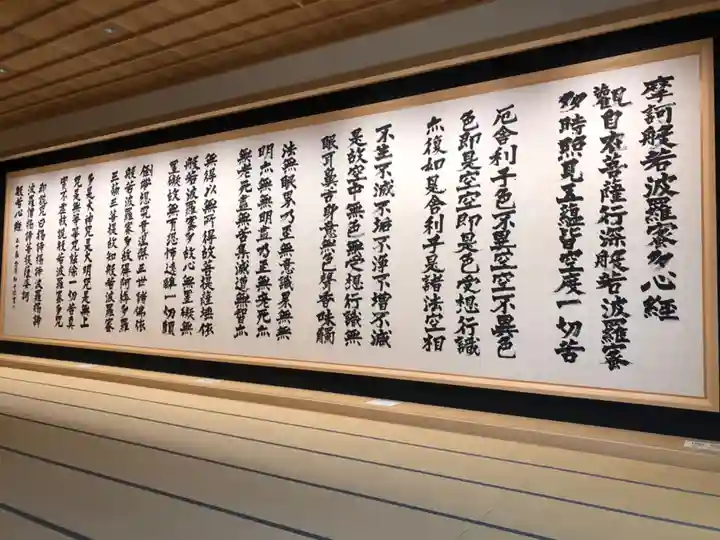 摩訶般若波羅蜜多心経
観自在菩薩行深般若波羅蜜
多時照見五蘊皆空度一切苦
厄舎利子色不異空空不異色
色即是空空即是色受想行識
亦復如是舎利子是諸法空相
不生不滅不垢不浄不増不減
是故空中無色無受想行識無
眼耳鼻舌身意無色声香味触
法無眼界乃至無意識界無無
明亦無無明盡乃至無老死亦
無老死盡無苦集滅道無智亦
無得以無所得故菩提薩埵依
般若波羅蜜多故心無罣礙無
罣礙故無有恐怖遠離一切顛
倒夢想究竟涅槃三世諸佛依
般若波羅蜜多故得阿耨多羅
三藐三菩提故知般若波羅蜜
多是大神咒是大明咒是無上
咒是無等等咒能除一切苦真
實不虚故説般若波羅蜜多咒
即説咒曰羯諦羯諦波羅羯諦
波羅僧羯諦菩提薩婆訶
般若心経